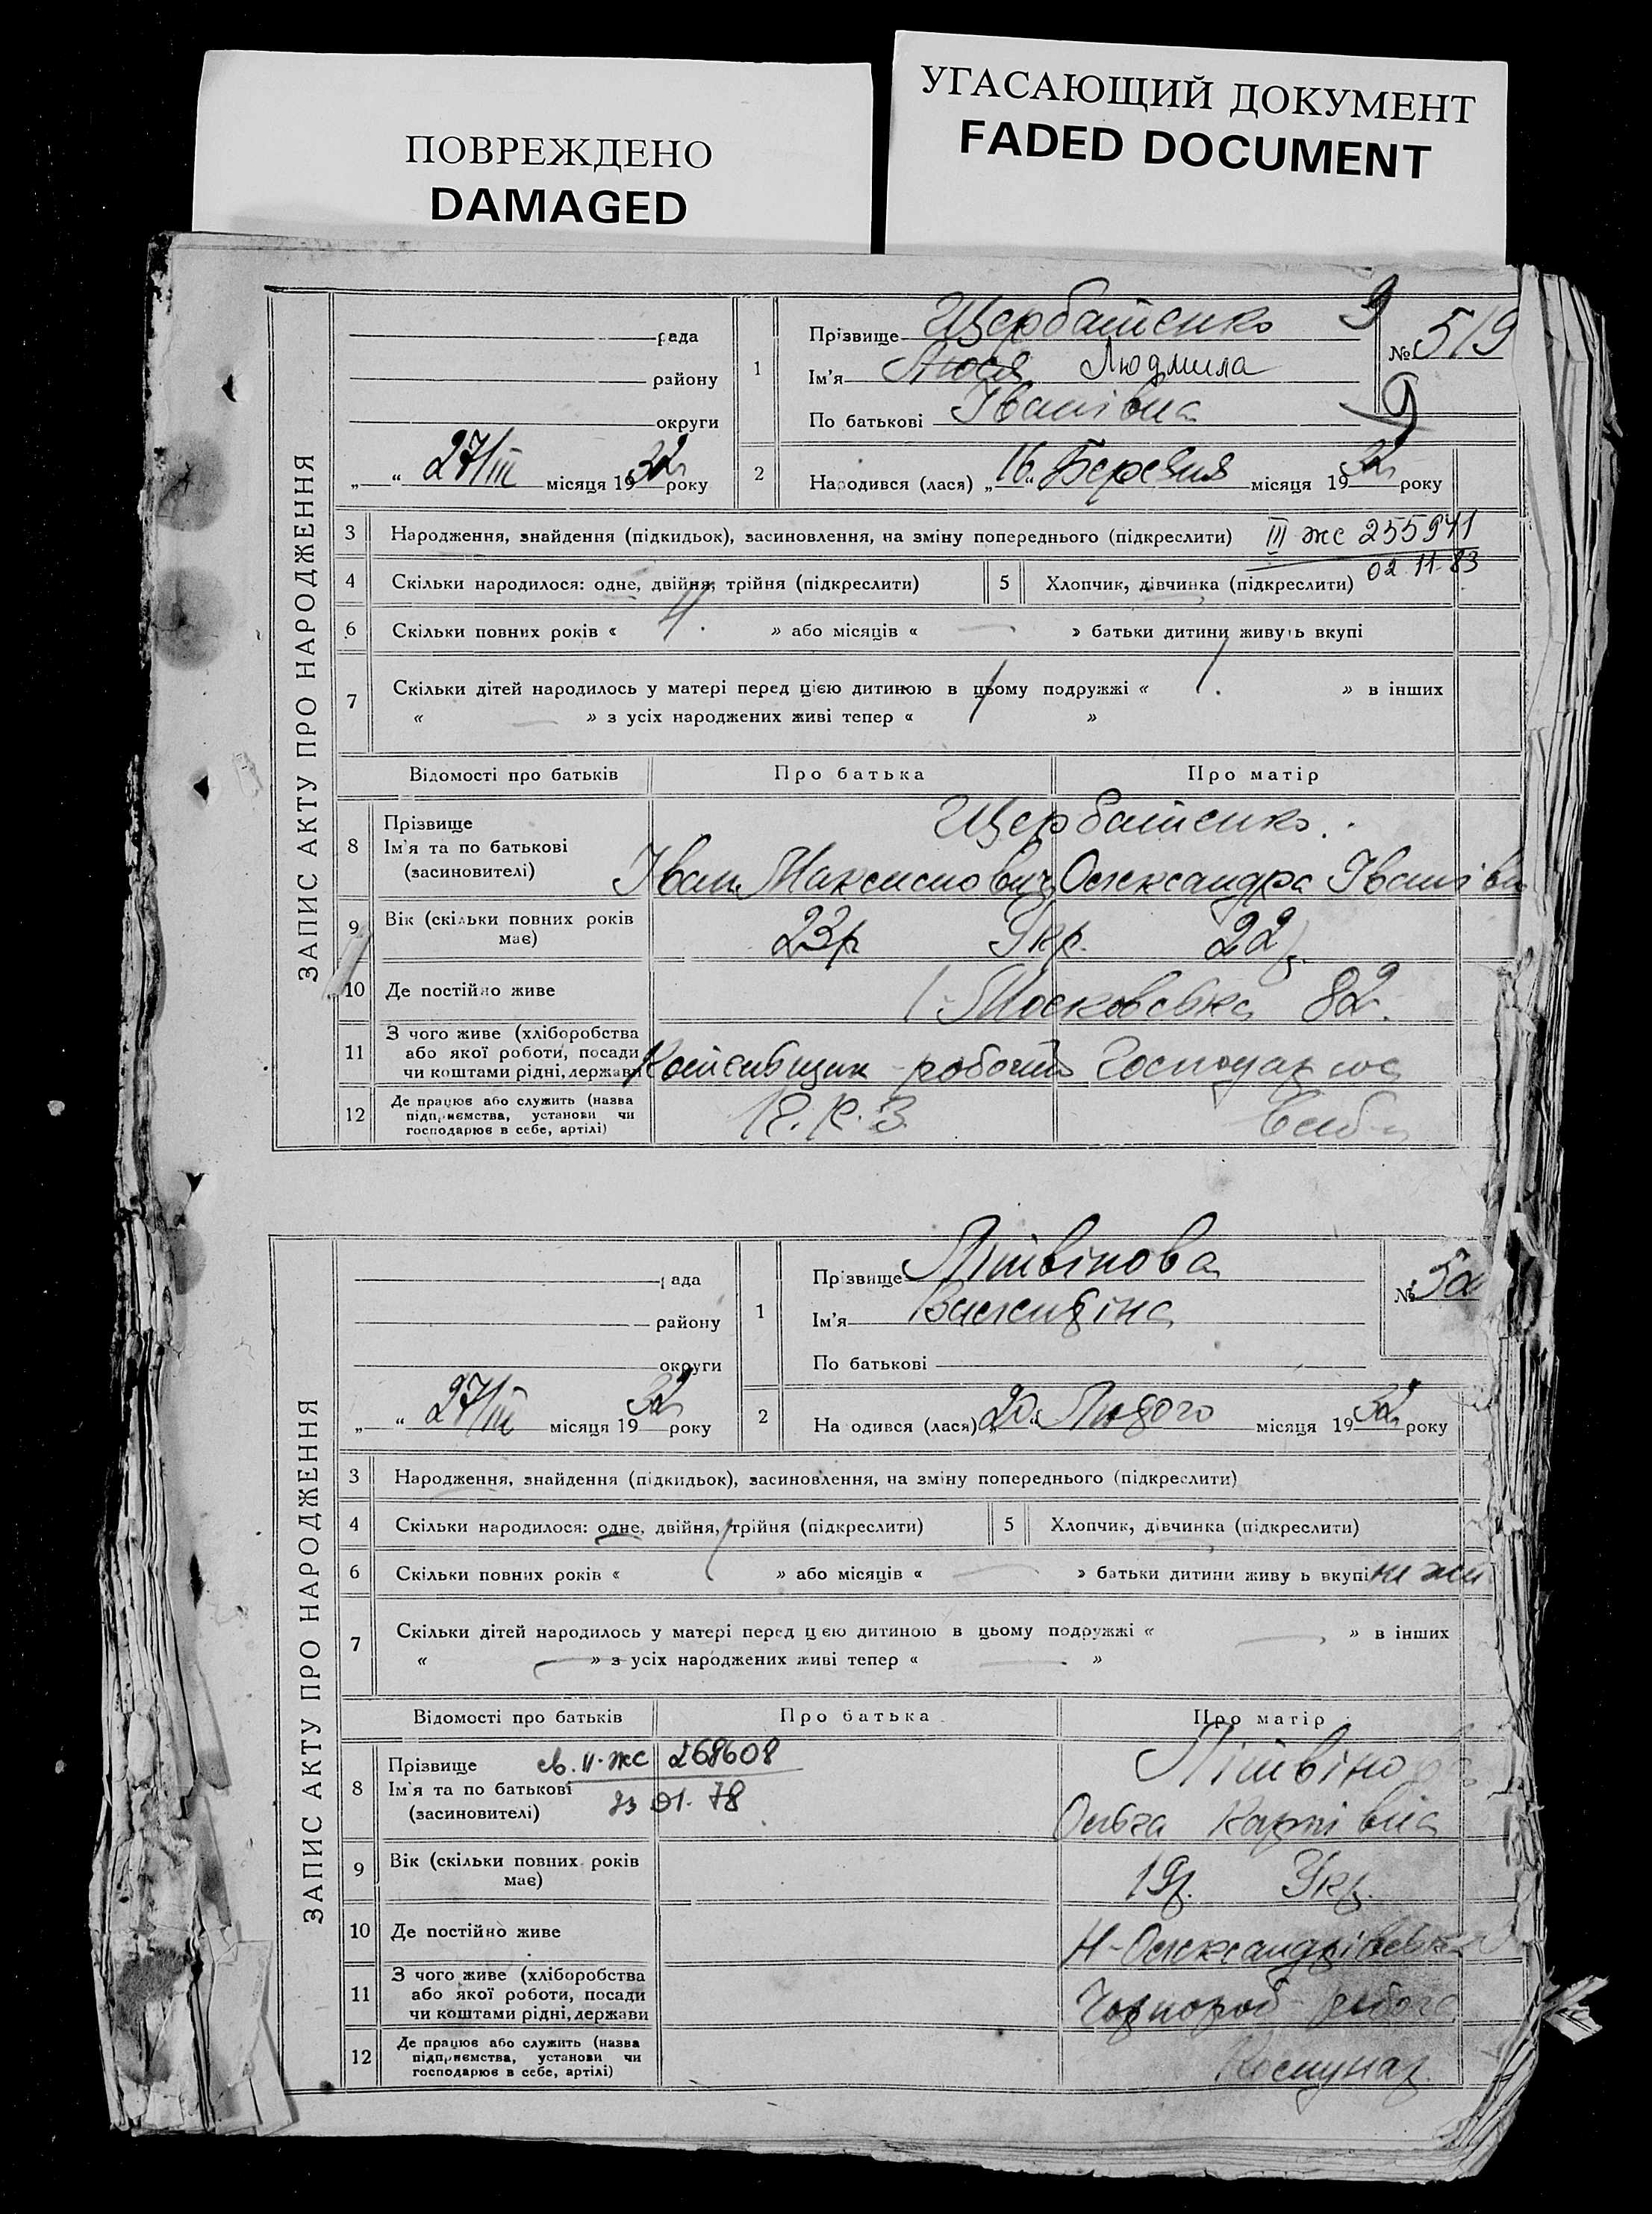 ПОВРЕЖДЕНО
DAMAGED
УГАСАЮЩИЙ ДОКУМЕНТ
FADED DOCUMENT
ЗАПИС АКТУ ПРО НАРОДЖЕННЯ
рада
району
округи
„ “ 27/III місяця 1932 року
1
Прізвище Щербатенко 9
Ім'я Люся Людмила
По батькові Іванівна
№ 519
9
2 Народився (лася) „16“ Березня місяця 1932 року
3 Народження, знайдення (підкидьок), засиновлення, на зміну попереднього (підкреслити) III жс 255971
02.11.83
4 Скільки народилося: одне, двійня, трійня (підкреслити) 5 Хлопчик, дівчинка (підкреслити)
6 Скільки повних років « 4. » або місяців « — » батьки дитини живуть вкупі
7 Скільки дітей народилось у матері перед цією дитиною в цьому подружжі « 1. » в інших
« — » з усіх народжених живі тепер « 1 »
Відомості про батьків Про батька Про матір
8 Прізвище Щербатенко.
Ім'я та по батькові
(засиновителі) Іван Максимович Олександра Іванівн
9 Вік (скільки повних років має) 23р Укр. 22р.
10 Де постійно живе Московська 82.
11 З чого живе (хліборобства або якої роботи, посади чи коштами рідні, держави робочий Господарює
12 Де працює або служить (назва підприємства, установи чи господарює в себе, артілі)
ЗАПИС АКТУ ПРО НАРОДЖЕННЯ
рада
району
округи
„ “ 27/III місяця 1932 року
1
Прізвище Літвінова
Ім'я Валентіна
По батькові
№ 52
2 На одився (лася) „20“ Лютого місяця 1932 року
3 Народження, знайдення (підкидьок), засиновлення, на зміну попереднього (підкреслити)
4 Скільки народилося: одне, двійня, трійня (підкреслити) 5 Хлопчик, дівчинка (підкреслити)
6 Скільки повних років « » або місяців « — » батьки дитини живу ь вкупі не жи
7 Скільки дітей народилось у матері перед цією дитиною в цьому подружжі « — » в інших
« — » з усіх народжених живі тепер « — »
Відомості про батьків Про батька Про матір
8 Прізвище св. II-жс 268608 Літвінова
Ім'я та по батькові 23 01. 78
(засиновителі) Ольга Карпівна
9 Вік (скільки повних років має) 19р. Укр.
10 Де постійно живе Н-Олександрівська
11 З чого живе (хліборобства або якої роботи, посади чи коштами рідні, держави Чорнороб
12 Де працює або служить (назва підприємства, установи чи господарює в себе, артілі) Комунар